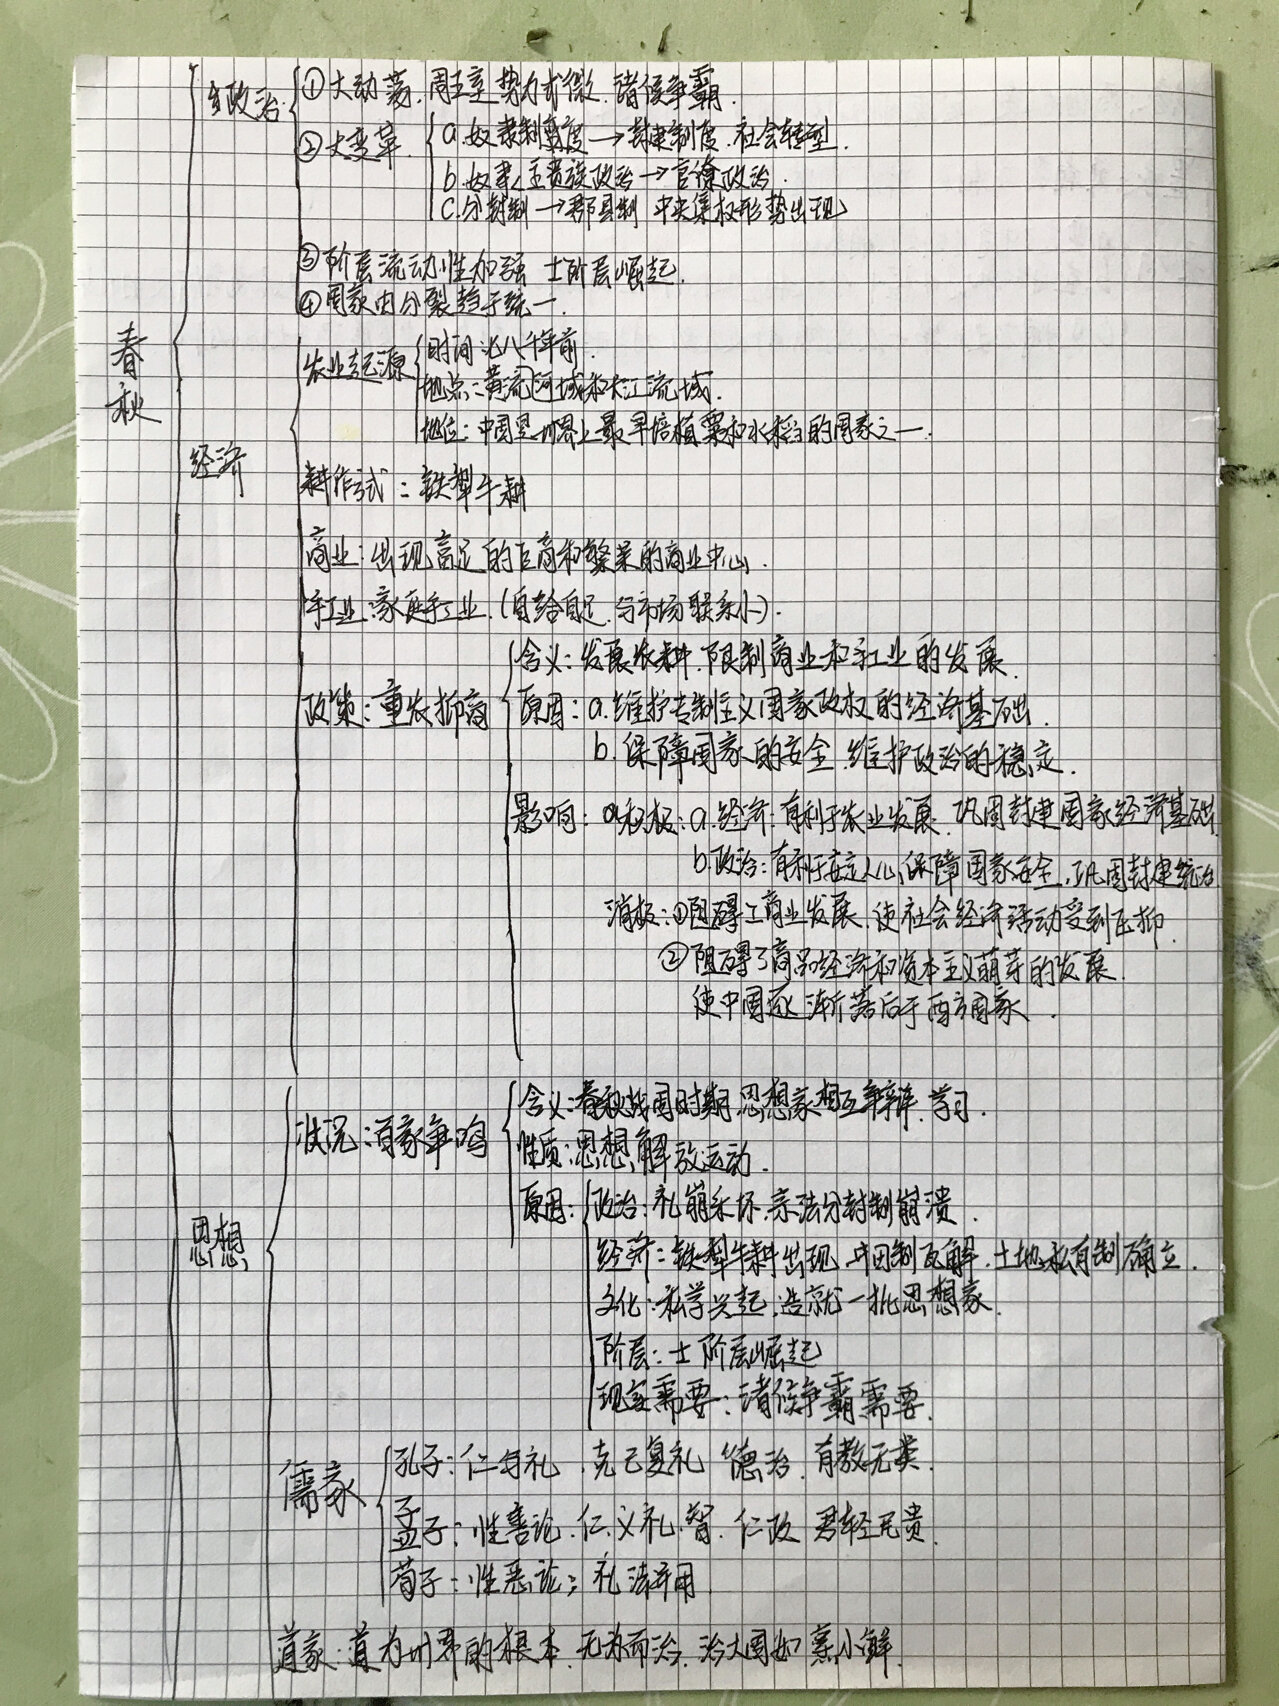 政治
①大动荡.周王室势力式微.诸侯争霸.
②大变革
a.奴隶制制度→封建制度.社会转型.
b.奴隶主贵族政治→官僚政治.
C.分封制→郡县制 中央集权形势出现
③阶层流动性加强 士阶层崛起.
④国家由分裂趋于统一.
春秋
经济
农业起源
时间:七八千年前.
地点:黄河河域和长江流域.
地位:中国是世界上最早培植粟和水稻的国家之一.
耕作式:铁犁牛耕
商业:出现富足的巨商和繁荣的商业中心.
手工业:家庭手工业.(自给自足,与市场联系小).
政策:重农抑商
含义:发展农耕.限制商业和手工业的发展.
原因:a.维护专制主义国家政权的经济基础.
b.保障国家的安全.维护政治的稳定.
影响:积极:a.经济:有利于农业发展.巩固封建国家经济基础
b.政治:有利于安定人心,保障国家安全,巩固封建统治
消极:①阻碍工商业发展.使社会经济活动受到压抑.
②阻碍了商品经济和资本主义萌芽的发展.
使中国逐渐落后于西方国家.
思想
状况:百家争鸣
含义:春秋战国时期.思想家相互争辩.学习.
性质:思想解放运动.
原因:政治:礼崩乐坏.宗法分封制崩溃.
经济:铁犁牛耕出现.井田制瓦解.土地私有制确立.
文化:私学兴起.造就一批思想家.
阶层:士阶层崛起
现实需要:诸侯争霸需要.
儒家
孔子:仁与礼.克己复礼 德治.有教无类.
孟子:性善论.仁.义礼.智.仁政 君轻民贵.
荀子:性恶论;礼法并用
道家:道为世界的根本.无为而治.治大国如烹小鲜.